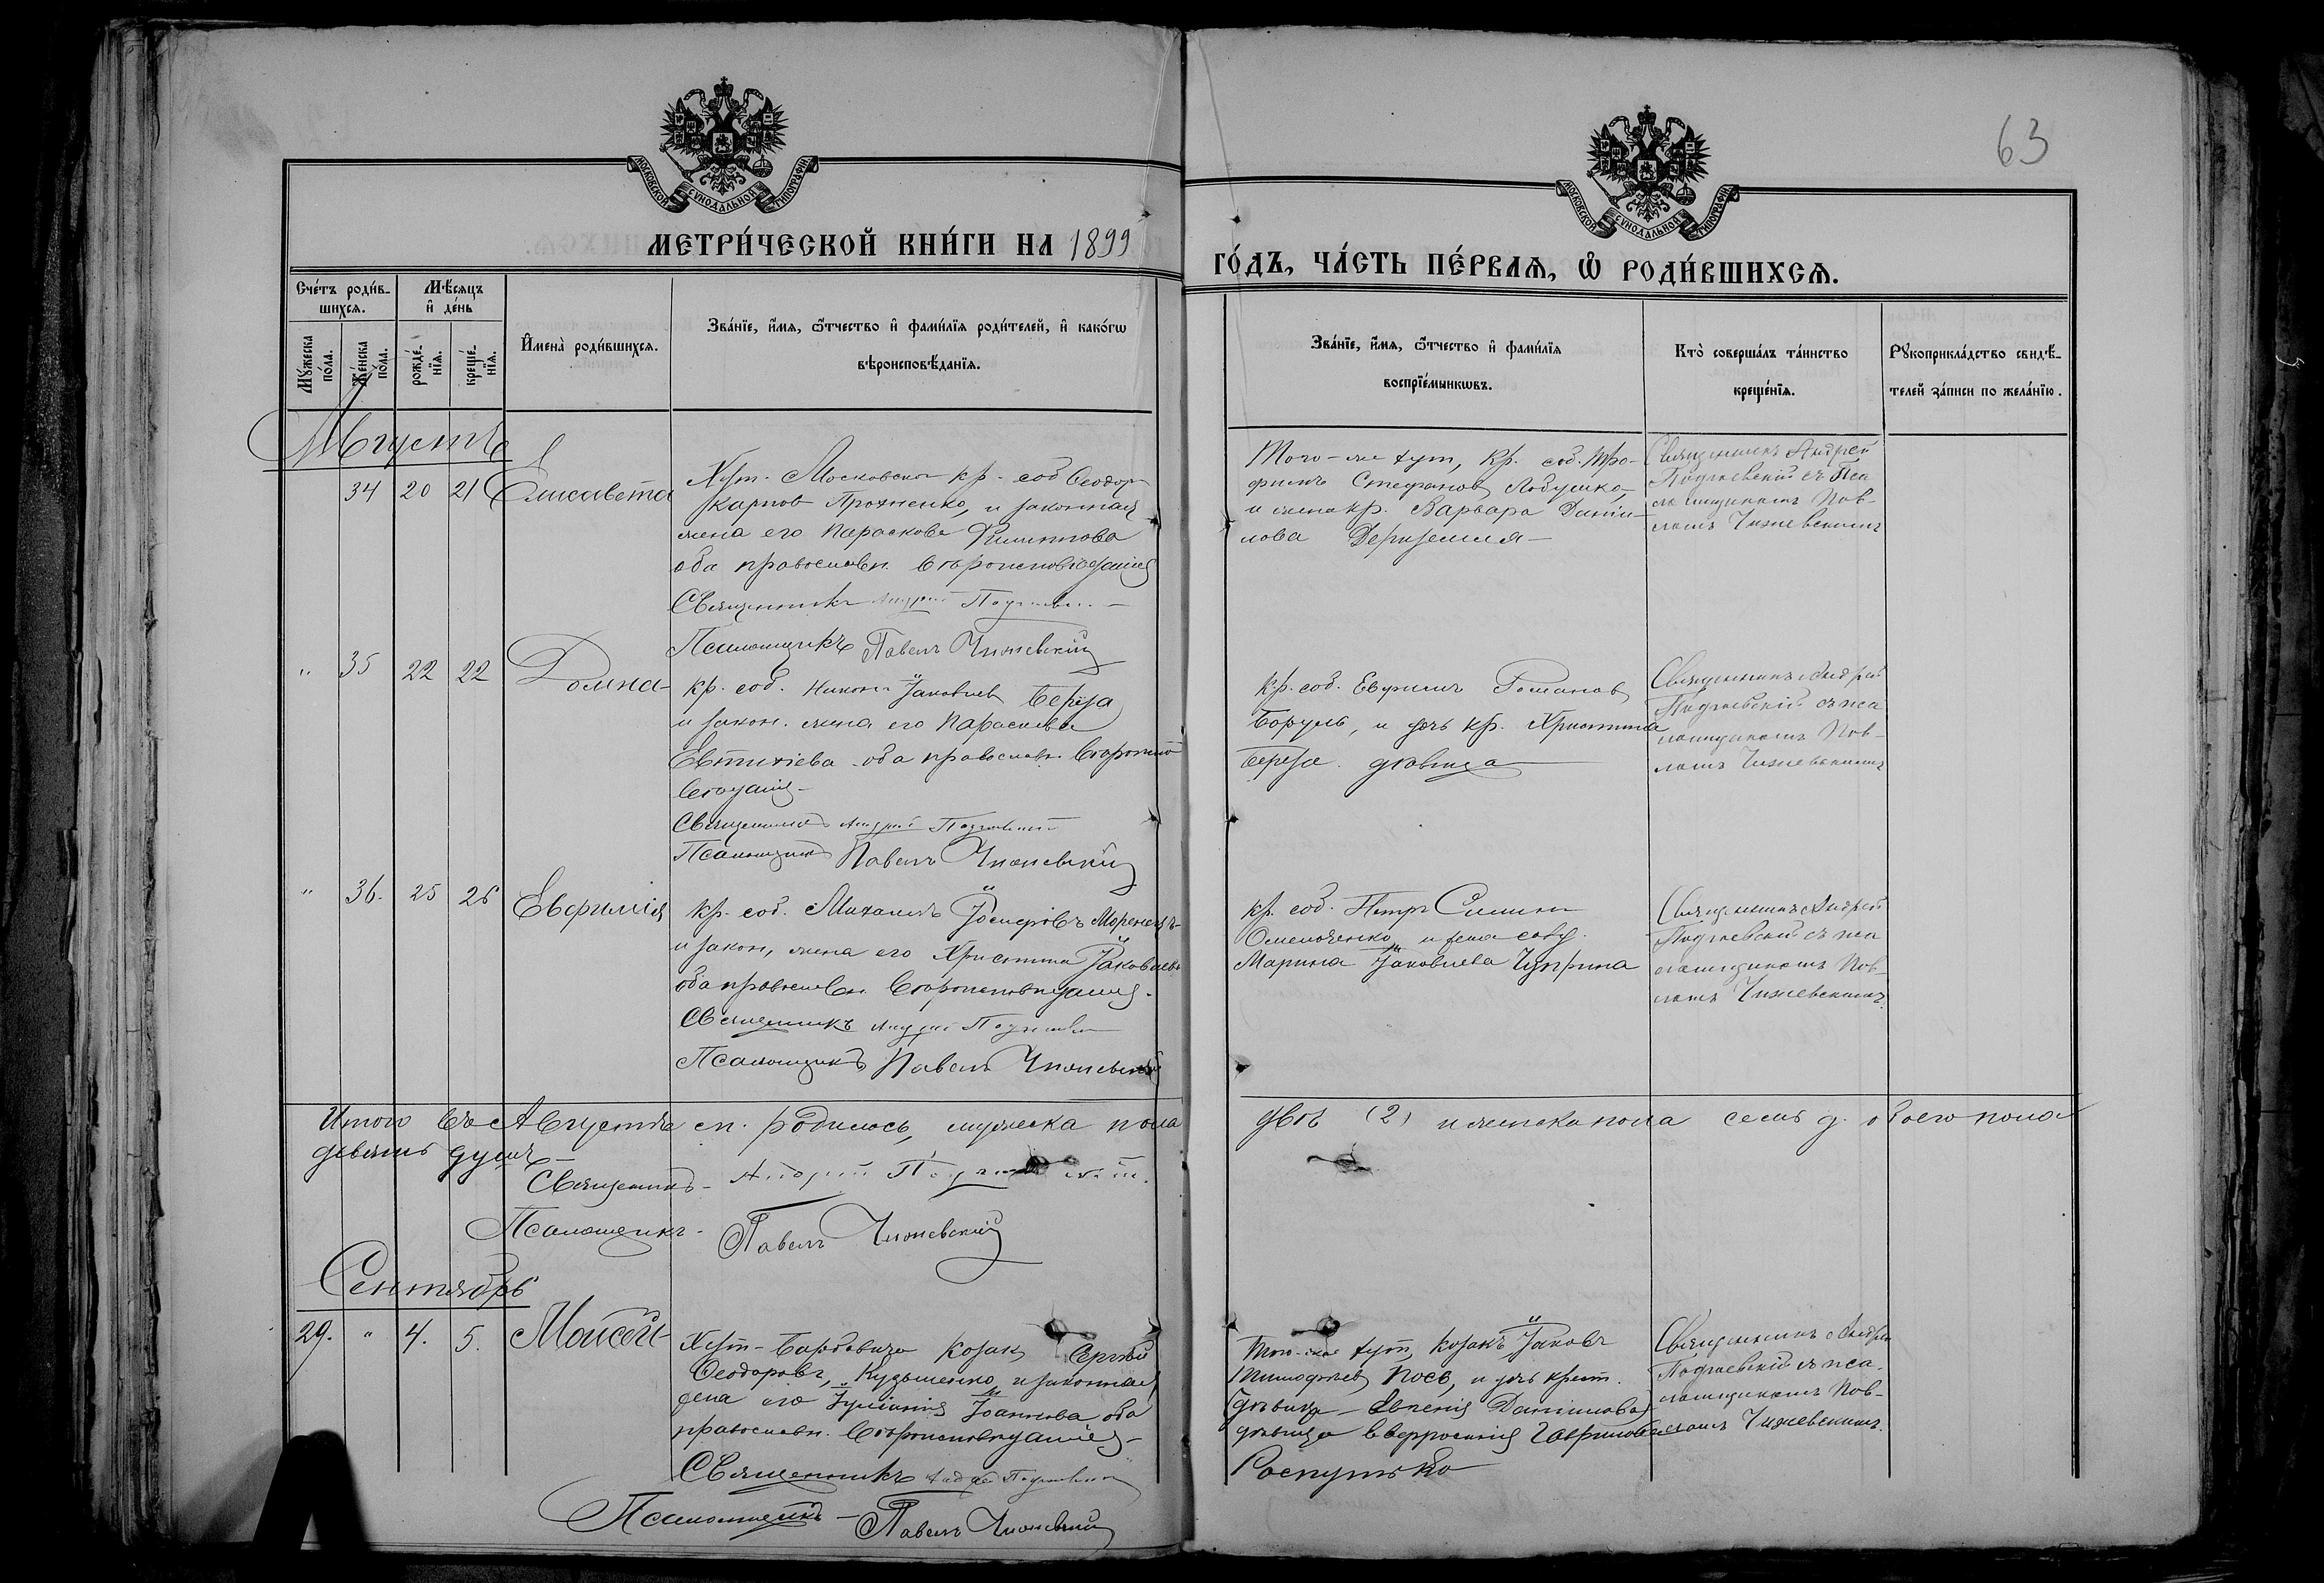 63
МОСКОВСКОЙ СѴНОДАЛЬНОЙ ТИПОГРАФІИ
МОСКОВСКОЙ СѴНОДАЛЬНОЙ ТИПОГРАФІИ
МЕТРИ́ЧЕСКОЙ КНИ́ГИ НА 1899
ГО́ДЪ, ЧА́СТЬ ПЕ́РВАѦ, Ѽ РОДИ́ВШИХСѦ.
Сче́тъ роди́в-
шихсѧ.
Мѣ́сяцъ
и҆ де́нь
Мꙋ́жеска
по́ла.
Же́нска
по́ла.
рожде́-
нїѧ.
креще́-
нїѧ.
И҆мена̀ роди́вшихсѧ.
Зва́нїе, и҆́мѧ, ѻ҆́тчество и҆ фами́лїѧ роди́телей, и҆ како́гѡ
вѣроисповѣ́данїѧ.
Зва́нїе, и҆́мѧ, ѻ҆́тчество и҆ фами́лїѧ
воспрїе́мникѡвъ.
Кто̀ соверша́лъ та́инство
креще́нїѧ.
Рꙋкоприкла́дство свидѣ́-
телей за́писи по жела́нїю.
Августъ
34 20 21 Елисавета
Хут. Московского кр. соб Ѳеодор
Карпов Прохненко, и законная
жена его Параскова Филиппова
оба православн. вѣроисповѣданія
Священникъ Андрей
Псаломщикъ Павелъ Чижевскій
Того-же хут, кр. соб. Тро-
фимъ Стефановъ Лобушко,
и жена кр. Варвара Даніи-
лова
Священникъ Андрей
Подгаевскій съ Пса
ломщикомъ Пав-
ломъ Чижевскимъ
" 35 22 22 Домна
кр. соб. Никонъ Іаковлев Береза
и закон. жена его Параскева
Евтихіева оба православн. вѣроиспо
вѣданія
Священникъ Андрей Подгаевскій
Псаломщикъ Павелъ Чижевскій
кр. соб. Евфимъ Романовъ
и дочь кр. Христина
Береза дѣвица
Священникъ Андрей
Подгаевскій съ пса
ломщикомъ Пав-
ломъ Чижевскимъ
" 36. 25 26 Евфимія
кр. соб. Михаилъ Іосифовъ Моренецъ
и закон, жена его Христина Іаковлева
оба православн. вѣроисповѣданія.
Священникъ Андрей
Псаломщикъ Павелъ Чижевскій
кр. соб. Петръ
Омельченко и жена
Марина Іаковлева Чуприна
Священникъ Андрей
Подгаевскій съ пса
ломщикомъ Пав-
ломъ Чижевскимъ
Итого въ Августѣ м. родилось, мужеска пола
двѣ (2) и женска пола семь д. обоего пола
девять душъ
Священникъ Андрей
Псаломщикъ Павелъ Чижевскій
Сентябрь
29. " 4. 5. Моисей
Хут. козак Сергѣй
Ѳеодоровъ, Кузьменко и законная
жена его Іуліанія Іоаннова оба
православн. вѣроисповѣданія
Священникъ Андрей
Псаломщикъ Павелъ Чижевскій
Того-же хут, козакъ Іаковъ
Тимофѣевъ и дочь крест.
дѣвица Евгенія Даниилова
дѣвица Гаврилова
Распутько
Священникъ Андрей
Подгаевскій съ пса-
ломщикомъ Пав-
ломъ Чижевскимъ.